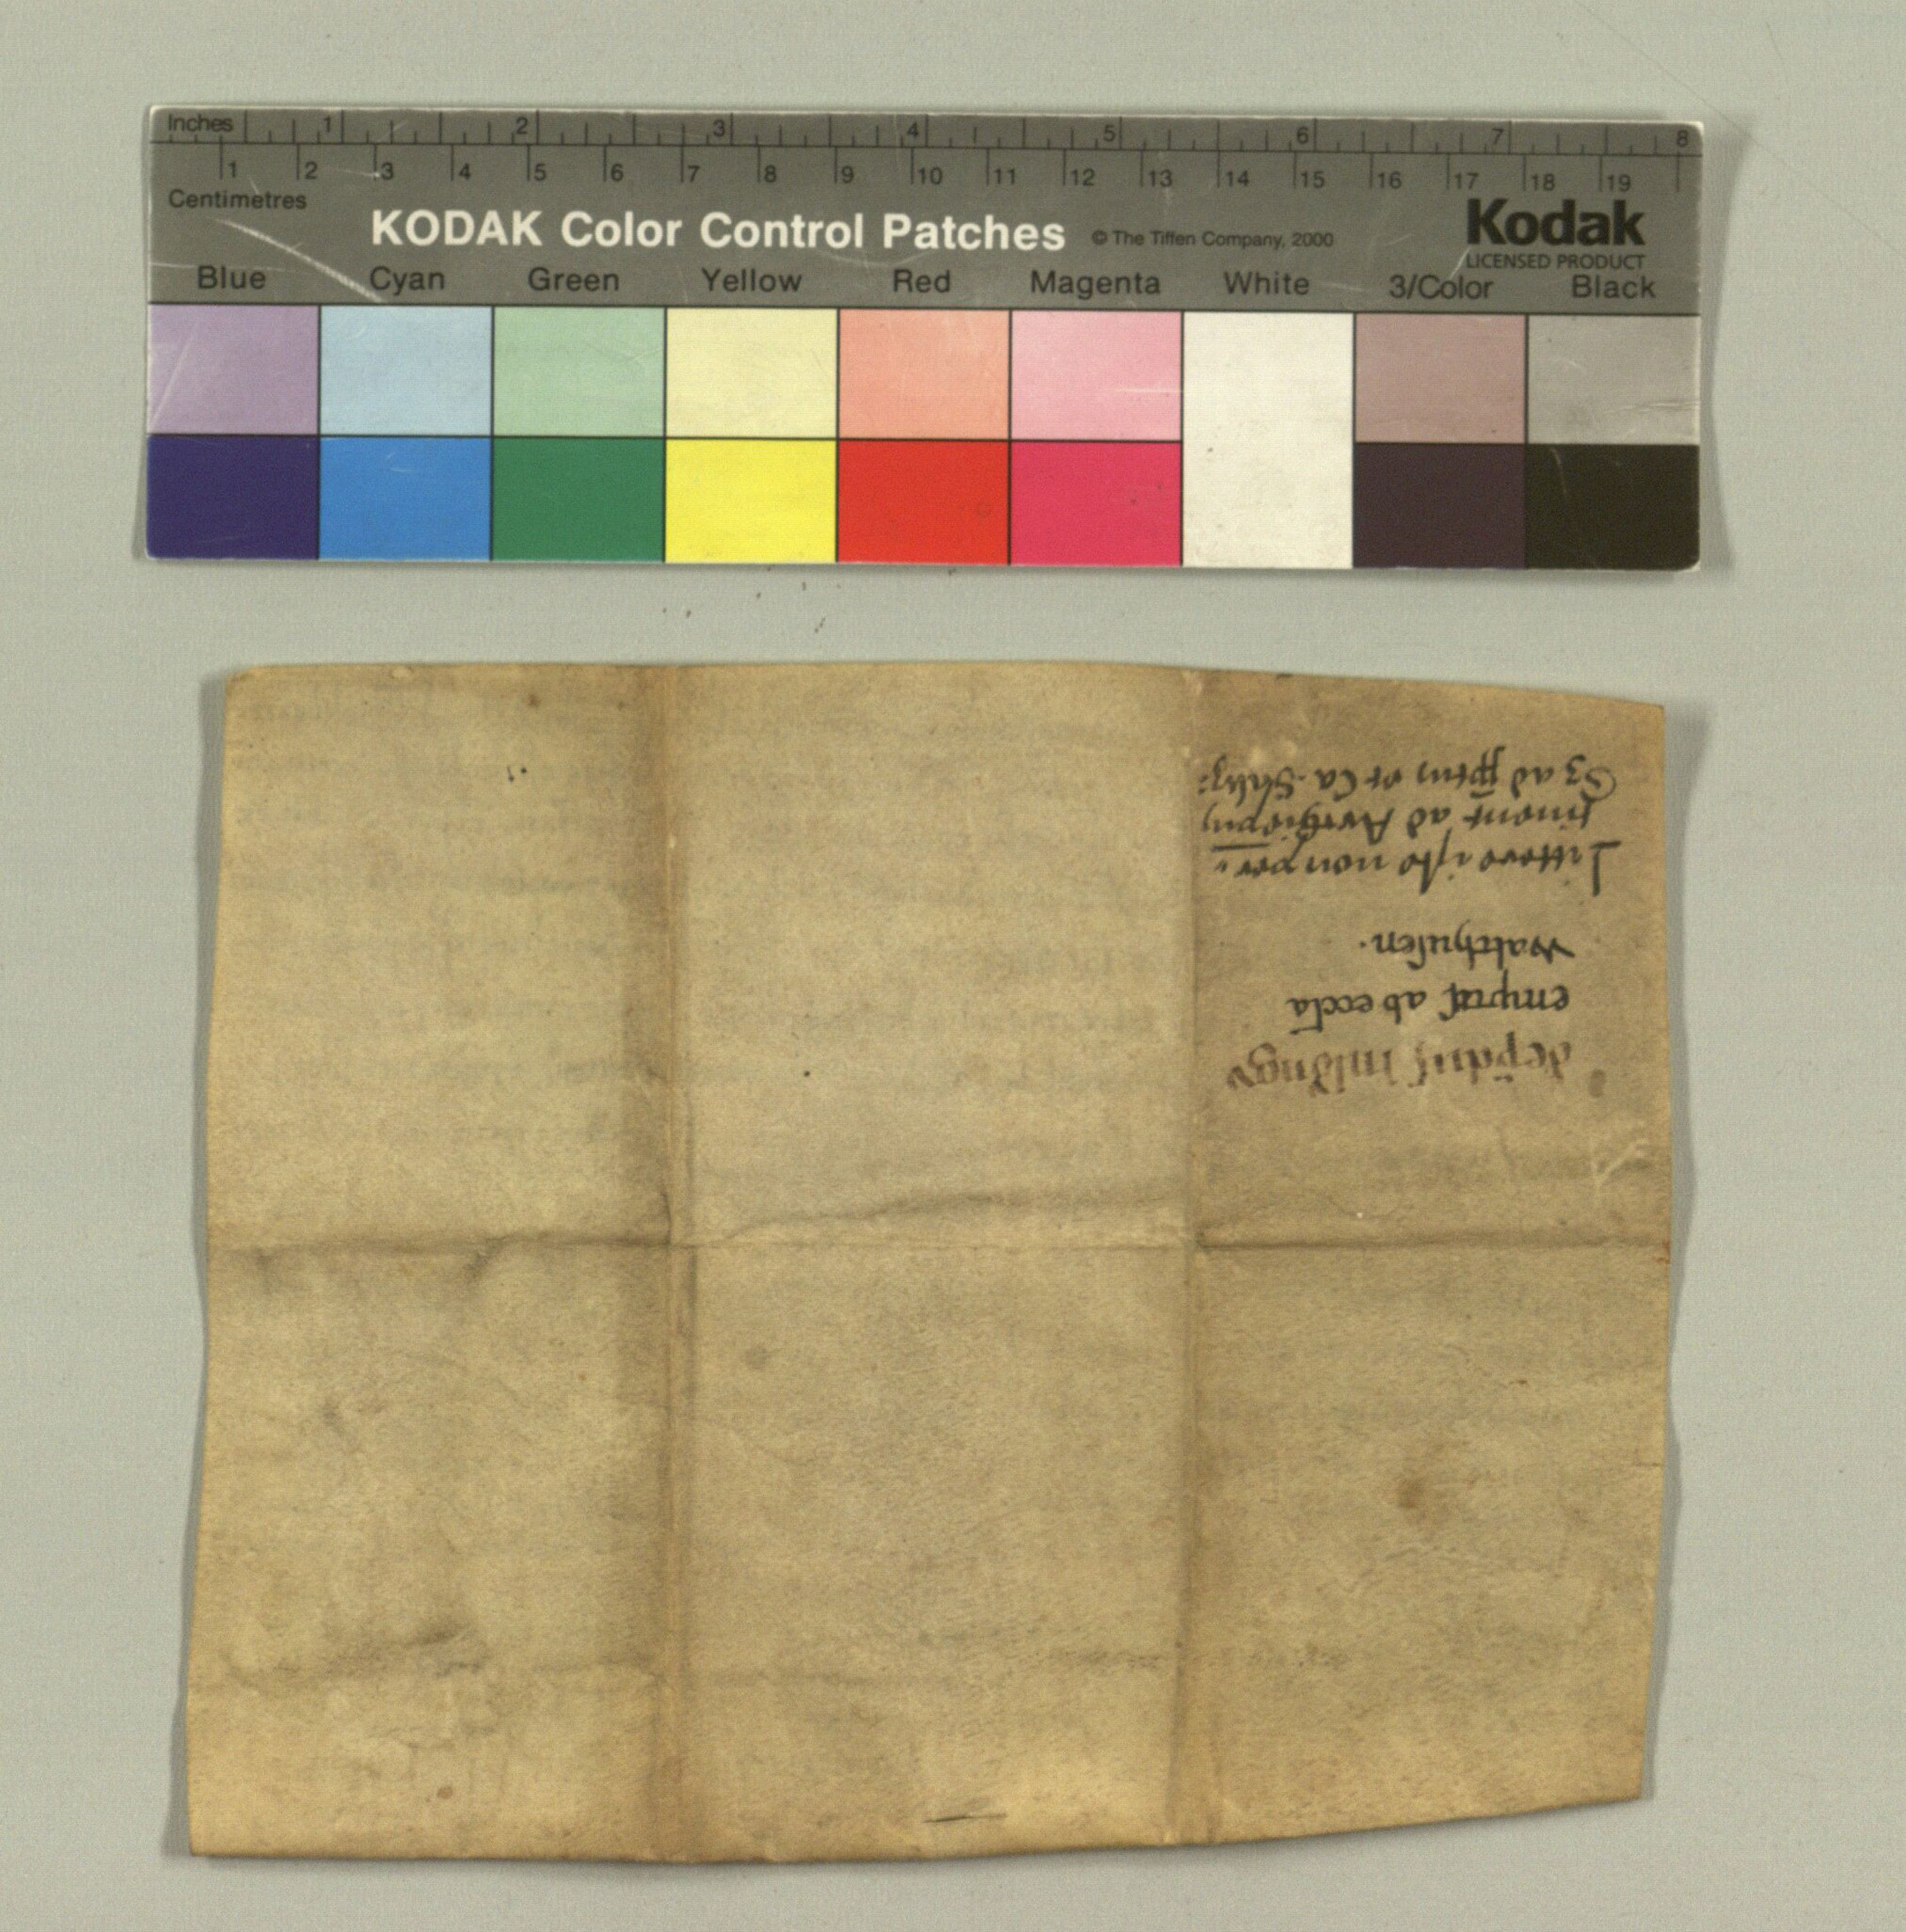 Inches 1 2 3 4 5 6 7 8
1 2 3 4 5 6 7 8 9 10 11 12 13 14 15 16 17 18 19
Centimetres
KODAK Color Control Patches © The Tiffen Company, 2000 Kodak
LICENSED PRODUCT
Blue Cyan Green Yellow Red Magenta White 3/Color Black
ab eccła
walthusen.
Littere iste non per
tinent ad
Sz ad et Ca.